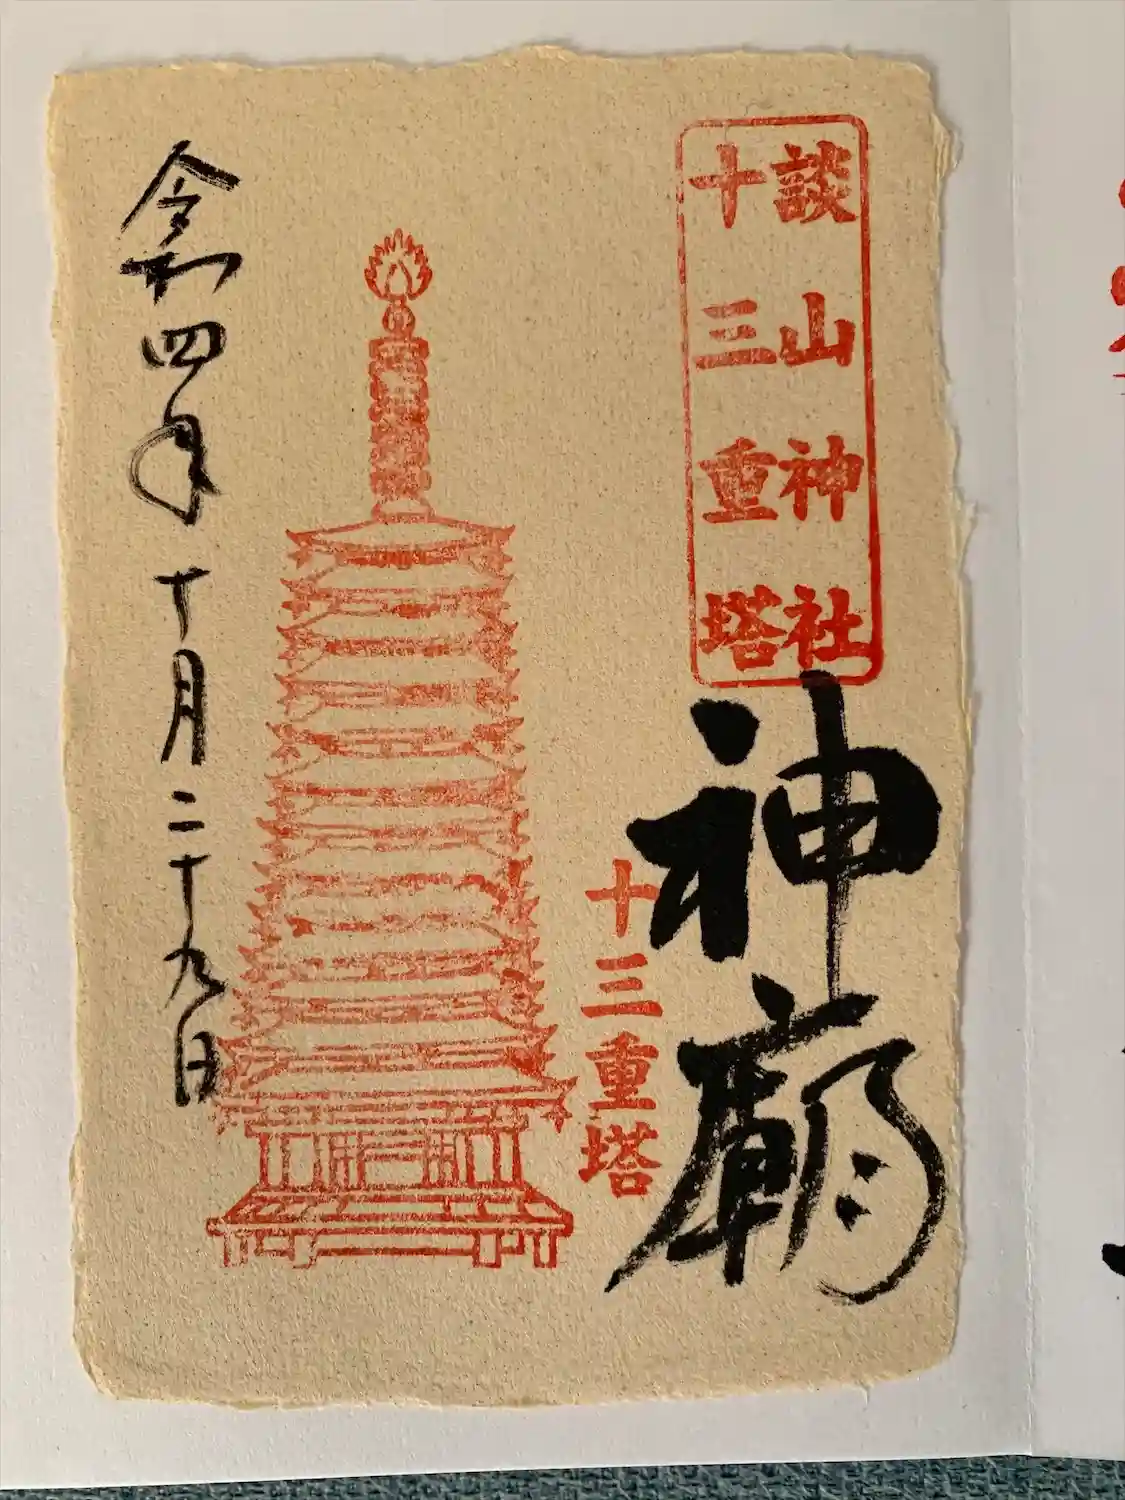 談山神社
十三重塔
神廟
十三重塔
令和四年十月二十九日